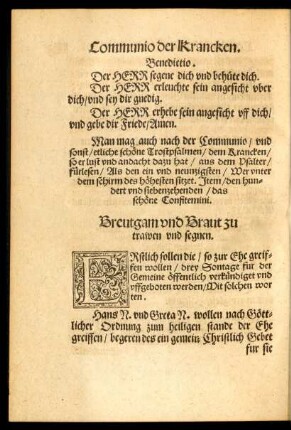 Communio der Krancken.
Benedictio.
Der HERR segene dich vnd behüte dich.
Der HERR erleuchte sein angesicht vber
dich/vnd sey dir gnedig.
Der HERR erhebe sein angesicht vff dich/
vnd gebe dir Friede/Amen.
Man mag auch nach der Communio / vnd
sonst/etliche schöne Trostpsalmen / dem Krancken/
so er lust vnd andacht dazu hat / aus dem Psalter/
fürlesen/ Als den ein vnd neunzigsten / Wer vnter
dem schirm des höhesten sitzet. Item/den hun-
dert vnd siebenzehenden /das
schöne Confitemini.
Breutgam vnd Braut zu
trawen vnd segnen.
ERstlich sollen die / so zur Ehe greif-
fen wollen / drey Sontage für der
Gemeine öffentlich verkündiget vnd
vffgeboten werden/Mit solchen wor-
ten.
Hans N. vnd Greta N. wollen nach Gött-
licher Ordnung zum heiligen stande der Ehe
greiffen/ begeren des ein gemein Christlich Gebet
fur sie